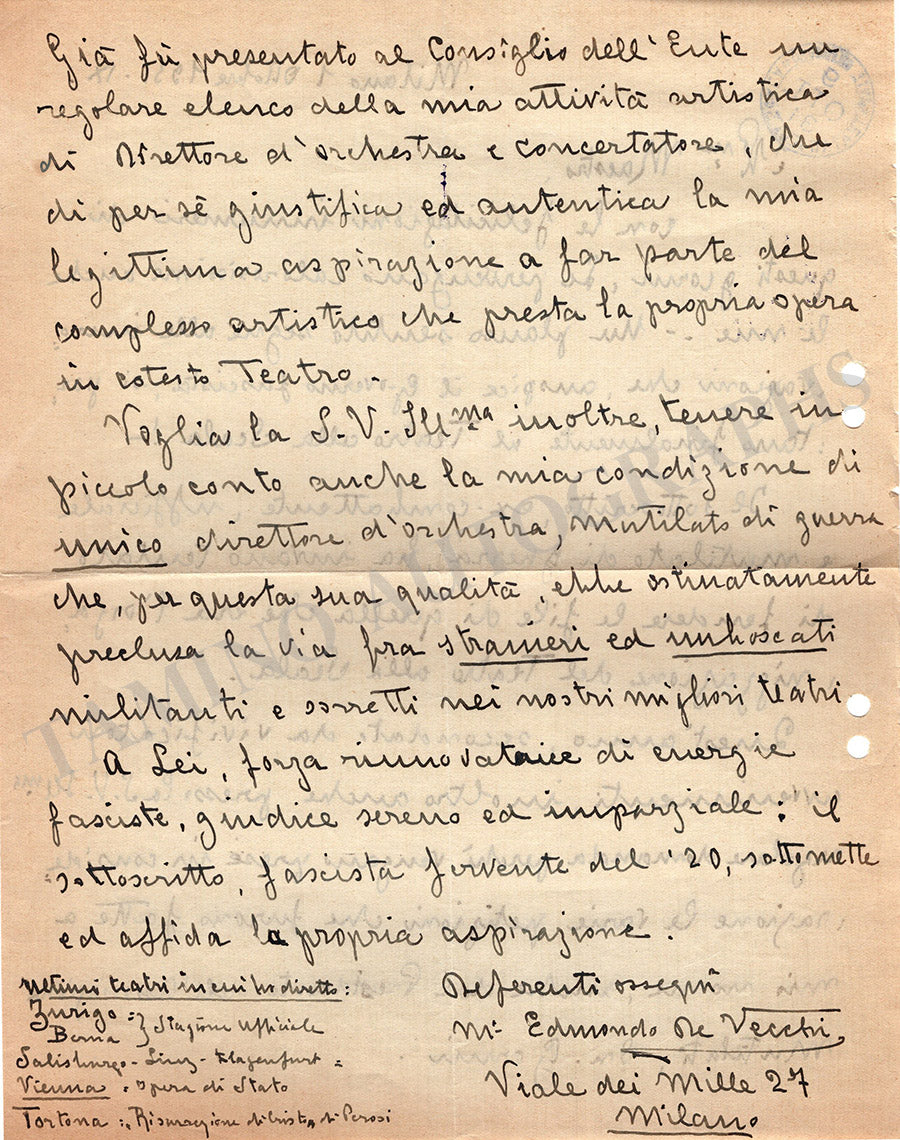 Già fù presentato al Consiglio dell'Ente un
regolare elenco della mia attività artistica
di Direttore d'orchestra e concertatore, che
di per sè giustifica ed autentica la mia
legittima aspirazione a far parte del
complesso artistico che presta la propria opera
in cotesto Teatro.
Voglia la S.V. Ill.ma inoltre, tenere in
piccolo conto anche la mia condizione di
unico direttore d'orchestra, mutilato di guerra
che, per questa sua qualità, ebbe ostinatamente
preclusa la via fra stranieri ed imboscati
militanti e sorretti nei nostri migliori teatri.
A Lei, forza rinnovatrice di energie
fasciste, giudice sereno ed imparziale: il
sottoscritto, fascista fervente del '20, sottomette
ed affida la propria aspirazione.
Deferenti ossequi
M° Edmondo De Vecchi,
Viale dei Mille 27
Milano
Ultimi teatri in cui ho diretto:
Zurigo =
Berna } Stagione Ufficiale
Salisburgo - Linz - Klagenfurt =
Vienna = Opera di Stato
Tortona = Risurrezione di Cristo, di Perosi
TAMINO AUTOGRAPHS